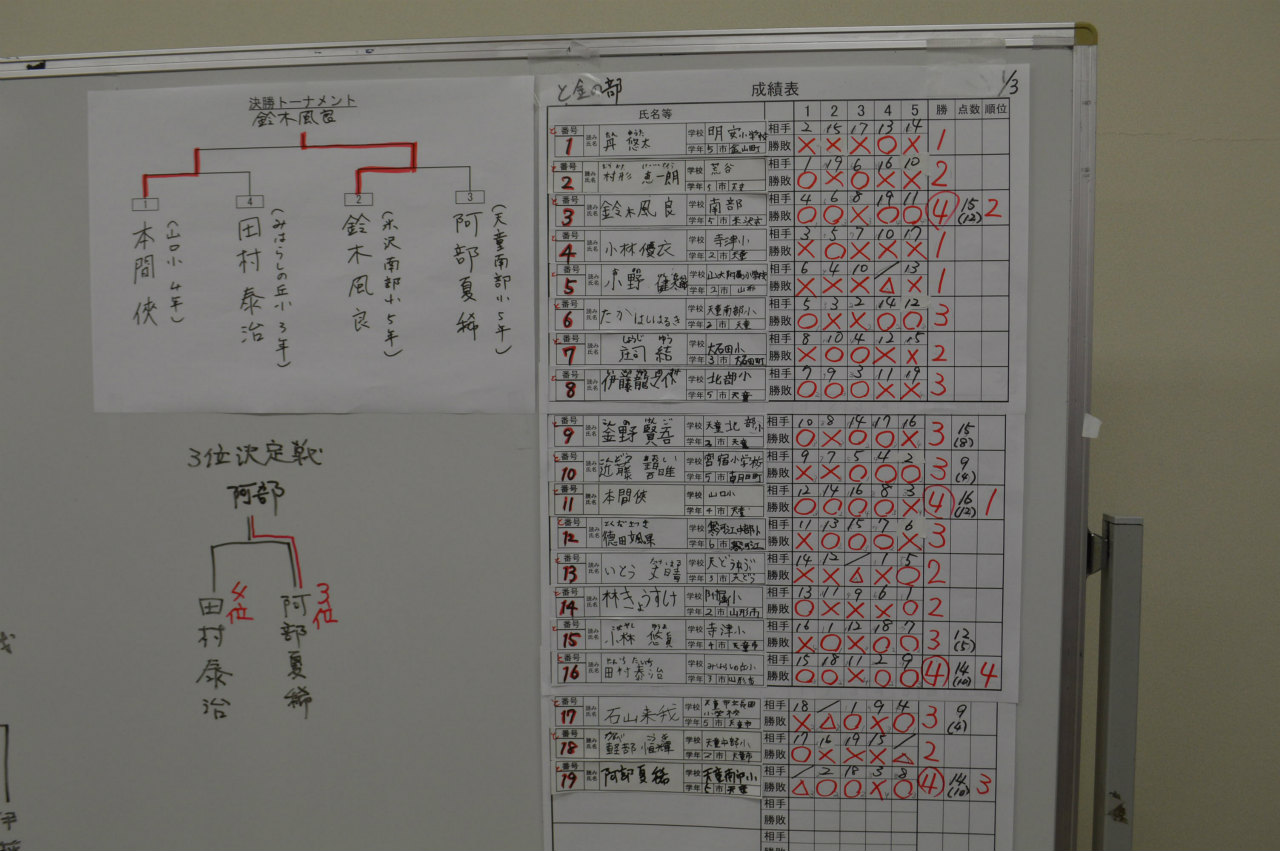 決勝トーナメント
鈴木風良
1
4
2
3
本間侠
(山口小 4年)
田村泰治
(みはらしの丘小 3年)
鈴木風良
(米沢南部小 5年)
阿部夏稀
(天童南部小 5年)
3位決定戦
阿部
田村泰治
4位
阿部夏稀
3位
と金の部
成績表
1/3
氏名等 1 2 3 4 5 勝 点数 順位
番号 1 丹 悠太 学校 明安小学校 学年 5 市 金山町 相手 2 15 17 13 14
勝敗 × × × ○ × 1
番号 2 村形 恵一朗 学校 荒谷 学年 5 市 天童 相手 1 19 6 16 10
勝敗 ○ × ○ × × 2
番号 3 鈴木風良 学校 南部 学年 5 市 米沢市 相手 4 6 8 19 11
勝敗 ○ ○ × ○ ○ 4 15 (12) 2
番号 4 小林優衣 学校 寺津小 学年 2 市 天童 相手 3 5 7 10 17
勝敗 × ○ × × × 1
番号 5 小野 学校 山大附属小学校 学年 2 市 山形 相手 6 4 10 / 13
勝敗 × × × △ × 1
番号 6 たかはしはるき 学校 天童南部小 学年 2 市 天童 相手 5 3 2 14 12
勝敗 ○ × × ○ ○ 3
番号 7 庄司 結 学校 大石田小 学年 3 市 大石田町 相手 8 10 4 12 15
勝敗 × ○ ○ × × 2
番号 8 伊藤龍之介 学校 北部小 学年 5 市 天童 相手 7 9 3 11 19
勝敗 ○ ○ ○ × × 3
番号 9 釜野賢吾 学校 天童北部小 学年 2 市 天童 相手 10 8 14 17 16
勝敗 ○ × ○ ○ × 3 15 (8)
番号 10 近藤 学校 宮宿小学校 学年 5 市 朝日町 相手 9 7 5 4 2
勝敗 × × ○ ○ ○ 3 9 (4)
番号 11 本間侠 学校 山口小 学年 4 市 天童 相手 12 14 16 8 3
勝敗 ○ ○ ○ ○ × 4 16 (12) 1
番号 12 徳田颯黒 学校 寒河江中部小 学年 6 市 寒河江 相手 11 13 15 7 6
勝敗 × ○ ○ ○ × 3
番号 13 いとう 丈晴 学校 天どうなんぶ 学年 3 市 天どう 相手 14 12 / 1 5
勝敗 × × △ × ○ 2
番号 14 林きょうすけ 学校 附属小 学年 2 市 山形市 相手 13 11 9 6 1
勝敗 ○ × × × ○ 2
番号 15 小林 悠真 学校 寺津小 学年 4 市 天童市 相手 16 1 12 18 7
勝敗 × ○ × ○ ○ 3 12 (5)
番号 16 田村泰治 学校 みはらしの丘小 学年 3 市 山形市 相手 15 18 11 2 9
勝敗 ○ ○ × ○ ○ 4 14 (10) 4
番号 17 石山来我 学校 天童市立長岡小学校 学年 5 市 天童市 相手 18 / 1 9 4
勝敗 × △ ○ × ○ 3 9 (4)
番号 18 軽部恒輝 学校 天童中部小 学年 2 市 天童市 相手 17 16 19 15 /
勝敗 ○ × × × △ 2
番号 19 阿部夏稀 学校 天童南部小 学年 5 市 天童 相手 / 2 18 3 8
勝敗 △ ○ ○ × ○ 4 14 (10) 3
相手
勝敗
相手